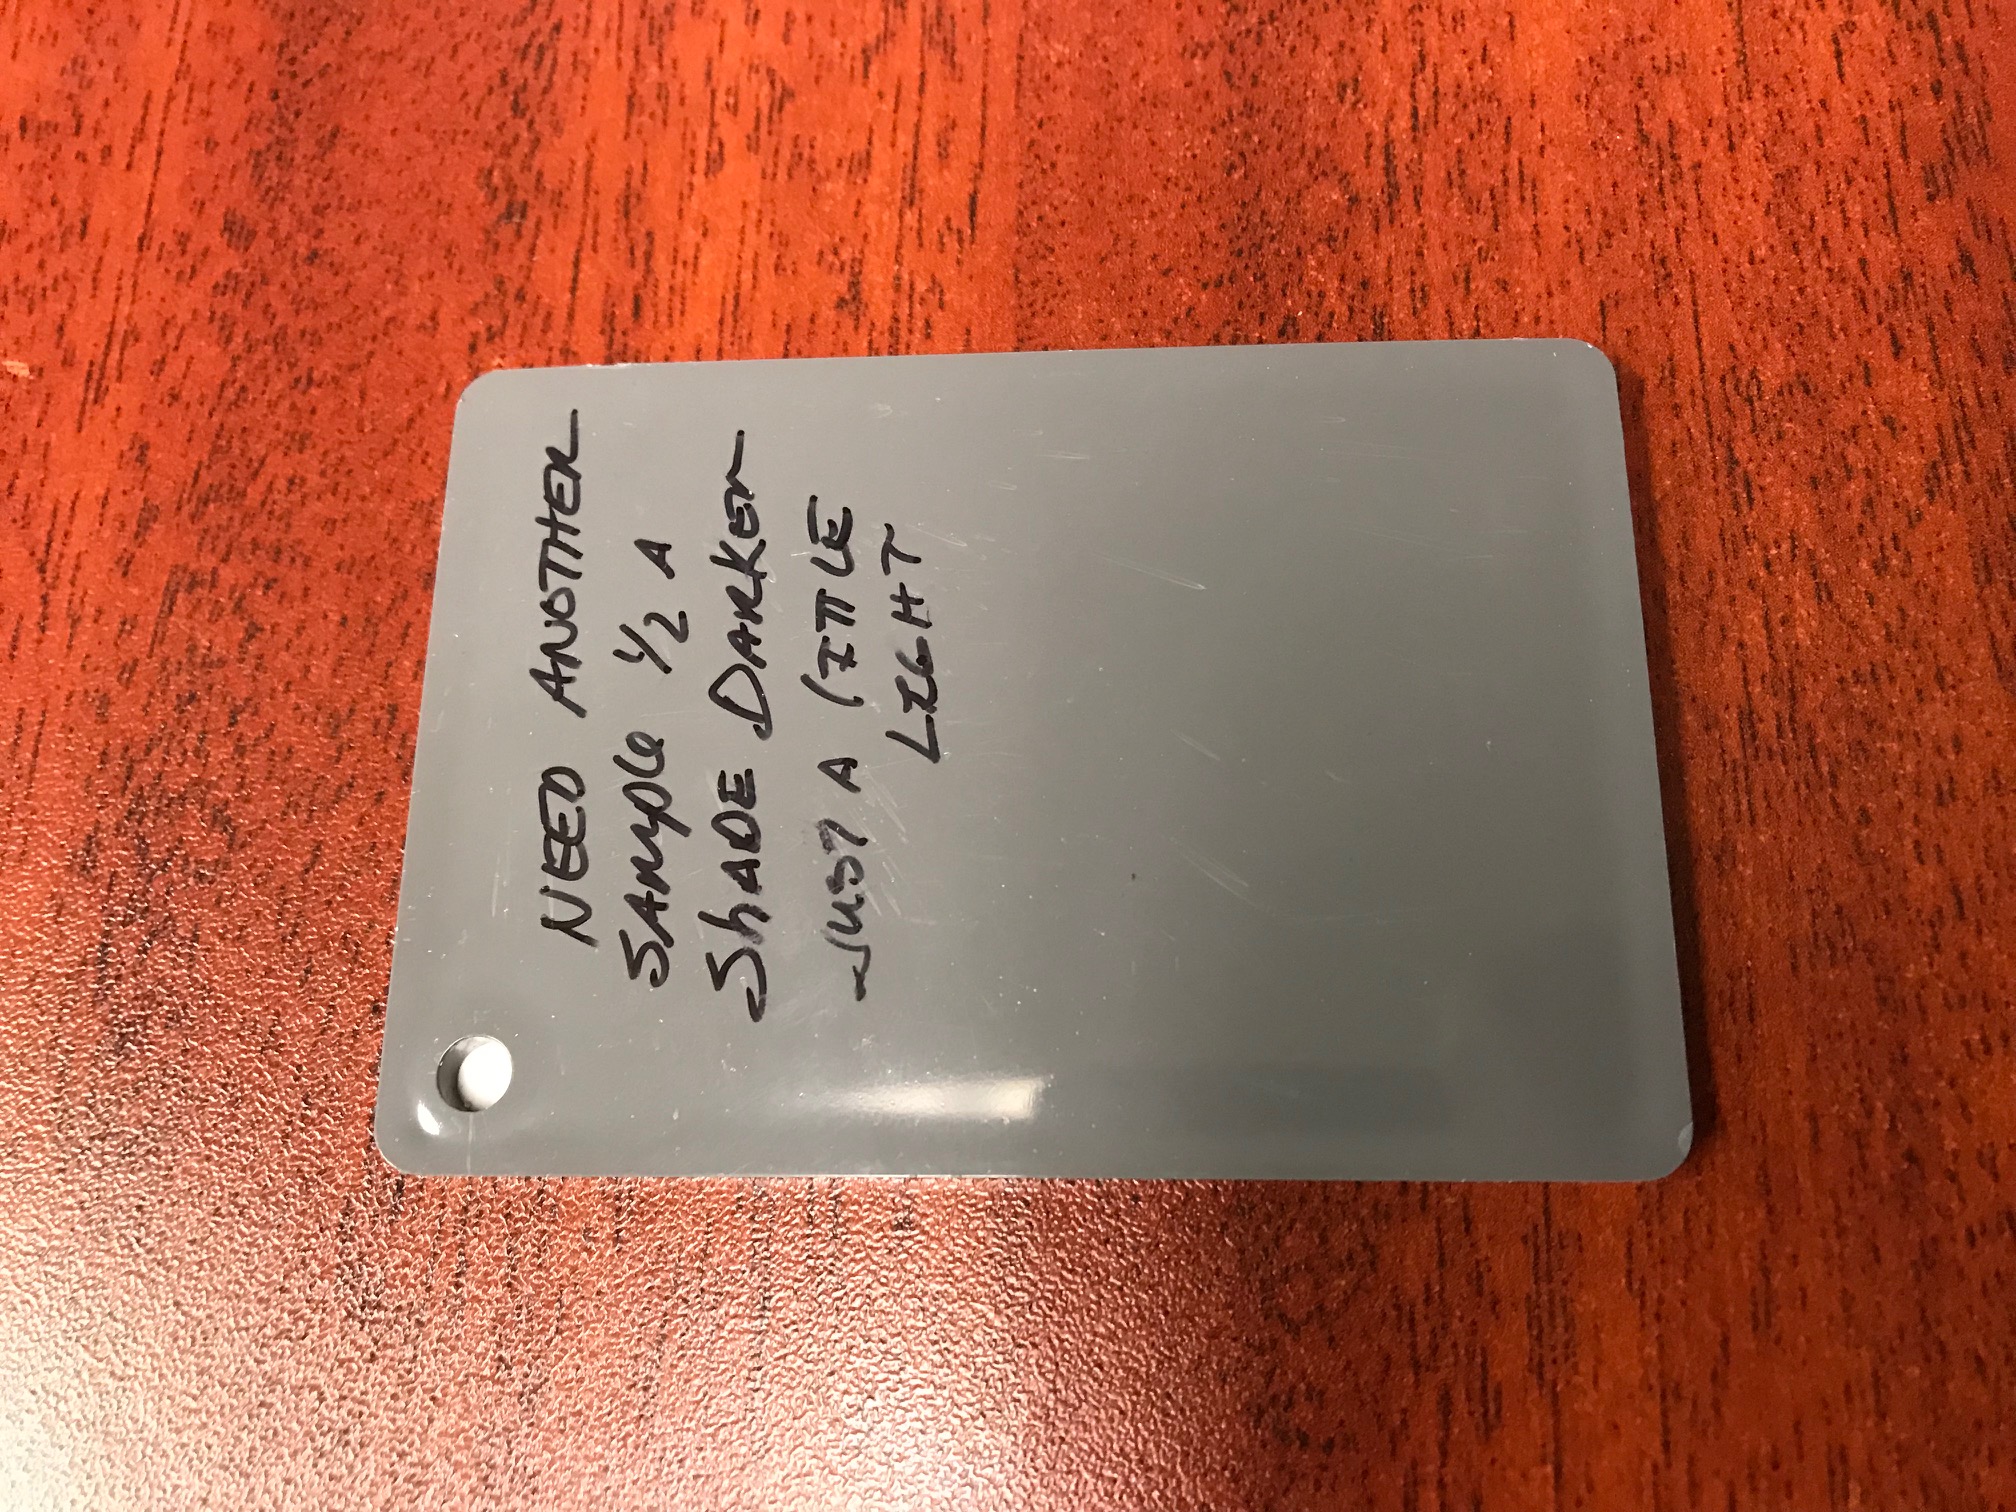 NEED ANOTHER
SAMPLE 1/2 A
ShADE DARKER
JUST A lITTLE
LIGHT